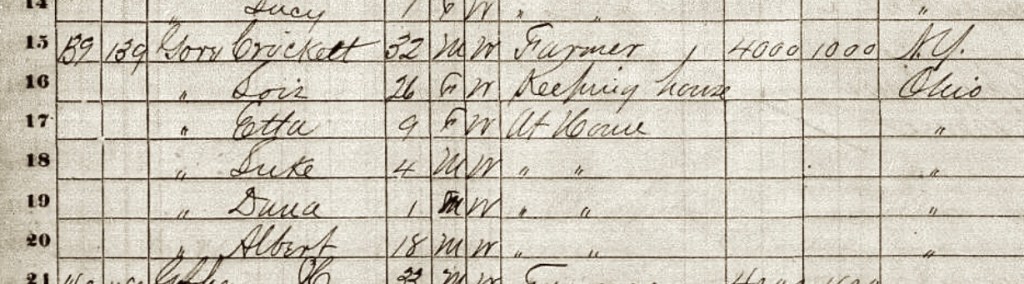 14 " Lucy 1 F W " " "
15 139 139 Gory Crockett 32 M W Farmer 1 4000 1000 N.Y.
16 " Lois 26 F W Keeping house Ohio
17 " Etta 9 F W At Home "
18 " Luke 4 M W " " "
19 " Dana 1 M W " " "
20 " Albert 18 M W " " "
21